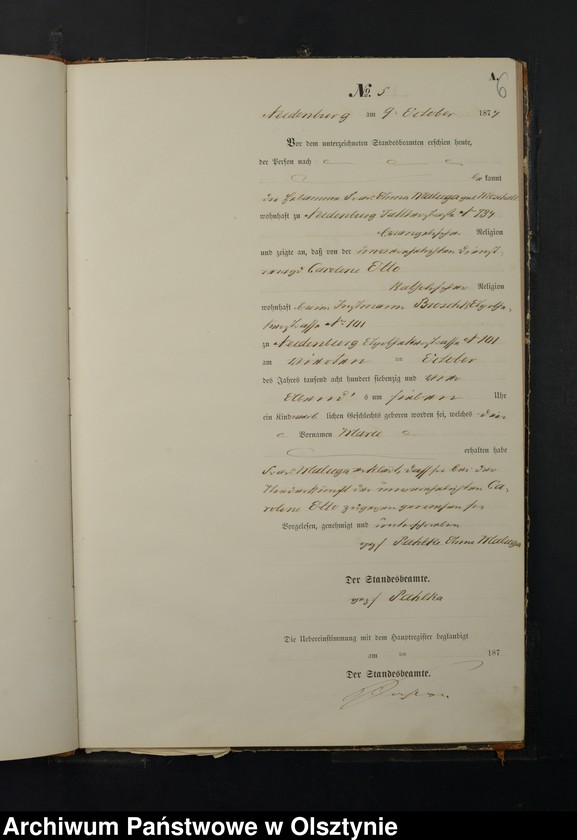 A.
6
No. 5
Neidenburg am 9. October 1874
Vor dem unterzeichneten Standesbeamten erschien heute,
der Person nach
kannt
die Hebamme Frau Anna Maluga geb.
wohnhaft zu Neidenburg No 134
Evangelischer Religion
und zeigte an, daß von der unverehelichten
Caroline Otto
Katholischer Religion
wohnhaft beim
No 101
zu Neidenburg No 101
am vierten October
des Jahres tausend acht hundert siebenzig und vier
Abends um sieben Uhr
ein Kind lichen Geschlechts geboren worden sei, welches den
Vornamen Marie
erhalten habe
Frau Maluga erklärte, daß sie bei der
Niederkunft der unverehelichten Ca-
roline Otto zugegen gewesen sei
Vorgelesen, genehmigt und unterschrieben
gez/ Pahlke Anna Maluga
Der Standesbeamte.
gez/ Pahlke
Die Uebereinstimmung mit dem Hauptregister beglaubigt
am ten 187
Der Standesbeamte.
Archiwum Państwowe w Olsztynie